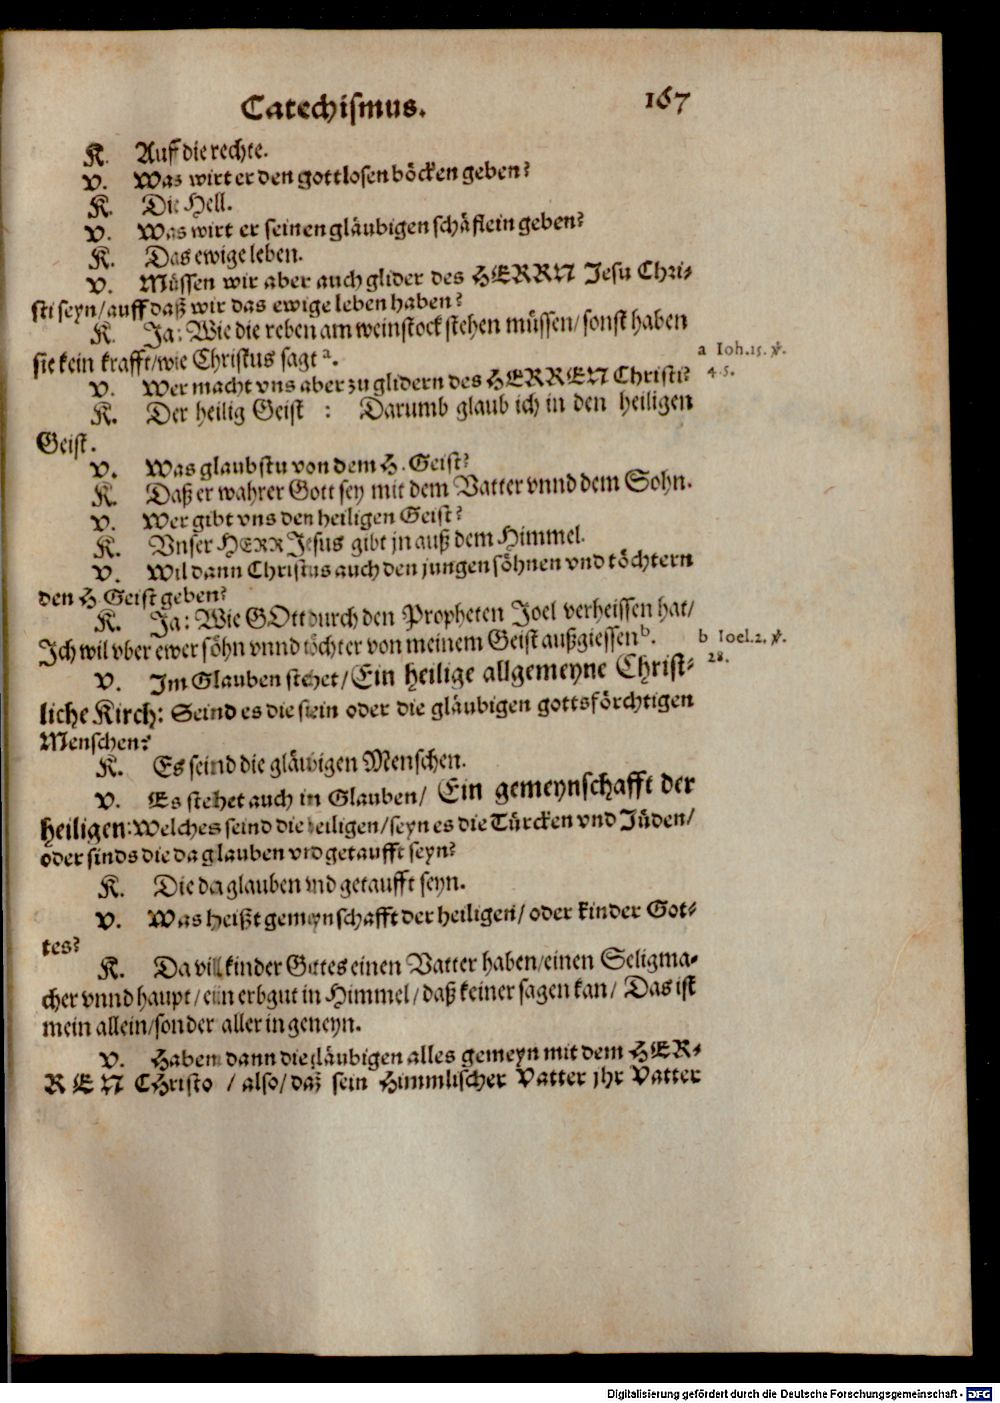 Catechismus. 167
K. Auff die rechte.
V. Was wirt er den gottlosen böcken geben?
K. Die Hell.
V. Was wirt er seinen gläubigen schäflein geben?
K. Das ewige leben.
V. Müssen wir aber auch glider des HERRN Jesu Chri-
sti seyn/auff daß wir das ewige leben haben?
K. Ja: Wie die reben am weinstock stehen müssen/sonst haben
sie kein krafft/wie Christus sagt a. a Ioh.15. ℣.
V. Wer macht vns aber zu glidern des HERREN Christi? 4.5.
K. Der heilig Geist : Darumb glaub ich in den heiligen
Geist.
V. Was glaubstu von dem H. Geist?
K. Daß er wahrer Gott sey mit dem Vatter vnnd dem Sohn.
V. Wer gibt vns den heiligen Geist?
K. Vnser HERR Jesus gibt jn auß dem Himmel.
V. Wil dann Christus auch den jungen söhnen vnd töchtern
den H. Geist geben?
K. Ja: Wie GOtt durch den Propheten Joel verheissen hat/
Ich wil vber ewer söhn vnnd töchter von meinem Geist außgiessen b. b Ioel.2. ℣.
28.
V. Im Glauben stehet/Ein heilige allgemeyne Christ-
liche Kirch: Seind es die stein oder die gläubigen gottsförchtigen
Menschen?
K. Es seind die gläubigen Menschen.
V. Es stehet auch in Glauben/ Ein gemeynschafft der
heiligen: Welches seind die heiligen/seyn es die Türcken vnd Jüden/
oder sinds die da glauben vnd getaufft seyn?
K. Die da glauben vnd getaufft seyn.
V. Was heißt gemeynschafft der heiligen/oder kinder Got-
tes?
K. Da vil kinder Gottes einen Vatter haben/einen Seligma-
cher vnnd haupt/ein erbgut in Himmel/daß keiner sagen kan/ Das ist
mein allein/sonder aller in gemeyn.
V. Haben dann die gläubigen alles gemeyn mit dem HER-
REN CHristo / also/daß sein Himmlischer Vatter jhr Vatter
Digitalisierung gefördert durch die Deutsche Forschungsgemeinschaft - DFG